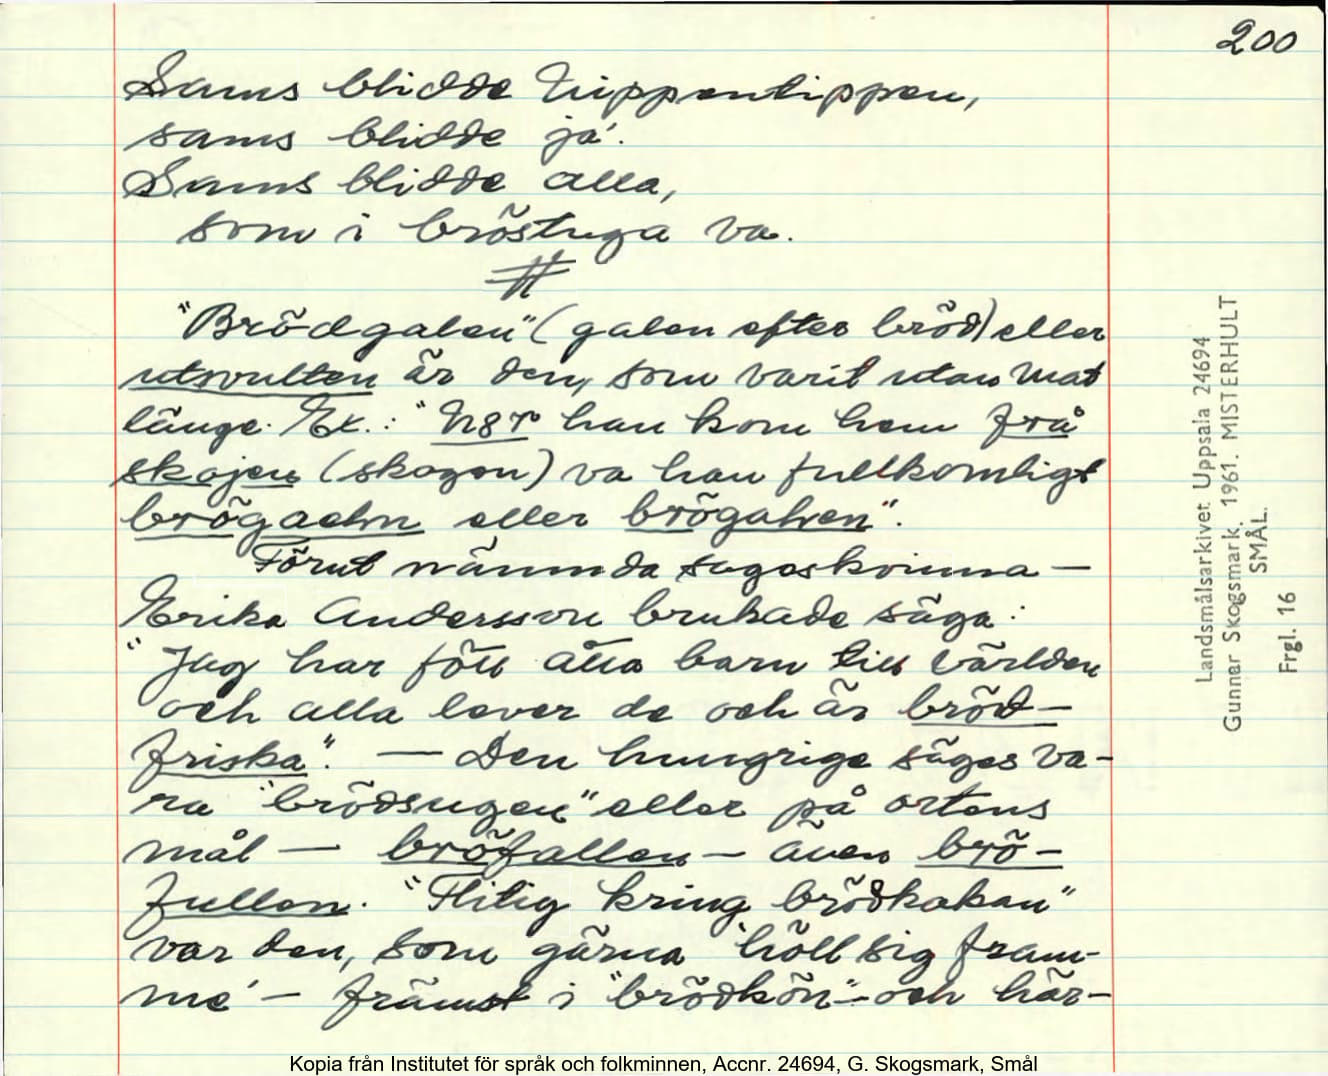 200
Sams blidde Nippentippen,
sams blidde ja'.
Sams blidde alla,
som i bröstuga va.
"Brödgalen" (galen efter bröd) eller
utsvulten är den, som varit utan mat
länge. Ex.: "När han kom hem frå
skojen (skogen) va han fullkomligt
brögaeln eller brögalven".
Förut nämnda sagoskvinna —
Erika Andersson brukade säga:
"Jag har fött åtta barn till världen
och alla lever de och är bröd-
friska". — Den hungrige säges va-
ra "brödsugen" eller på ortens
mål — bröfallen — även brö-
fullen. "Flitig kring brödkakan"
var den, som gärna 'höll sig fram-
me' — främst i "brödkön" — och här-
Landsmålsarkivet Uppsala 24694
Gunnar Skogsmark. 1961. MISTERHULT
SMÅL.
Frgl. 16
Kopia från Institutet för språk och folkminnen, Accnr. 24694, G. Skogsmark, Smål